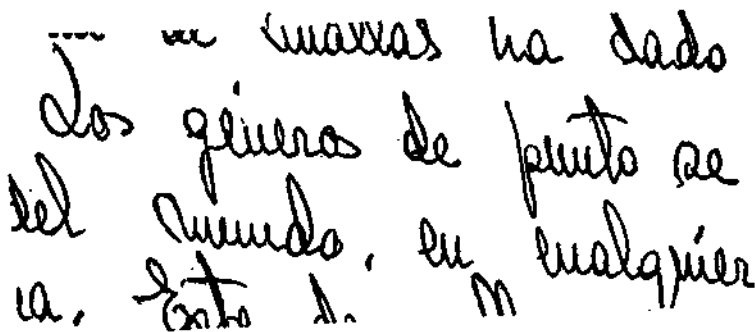 ha dado
Los géneros de punto se
del mundo, en cualquier
ia. Esta de M